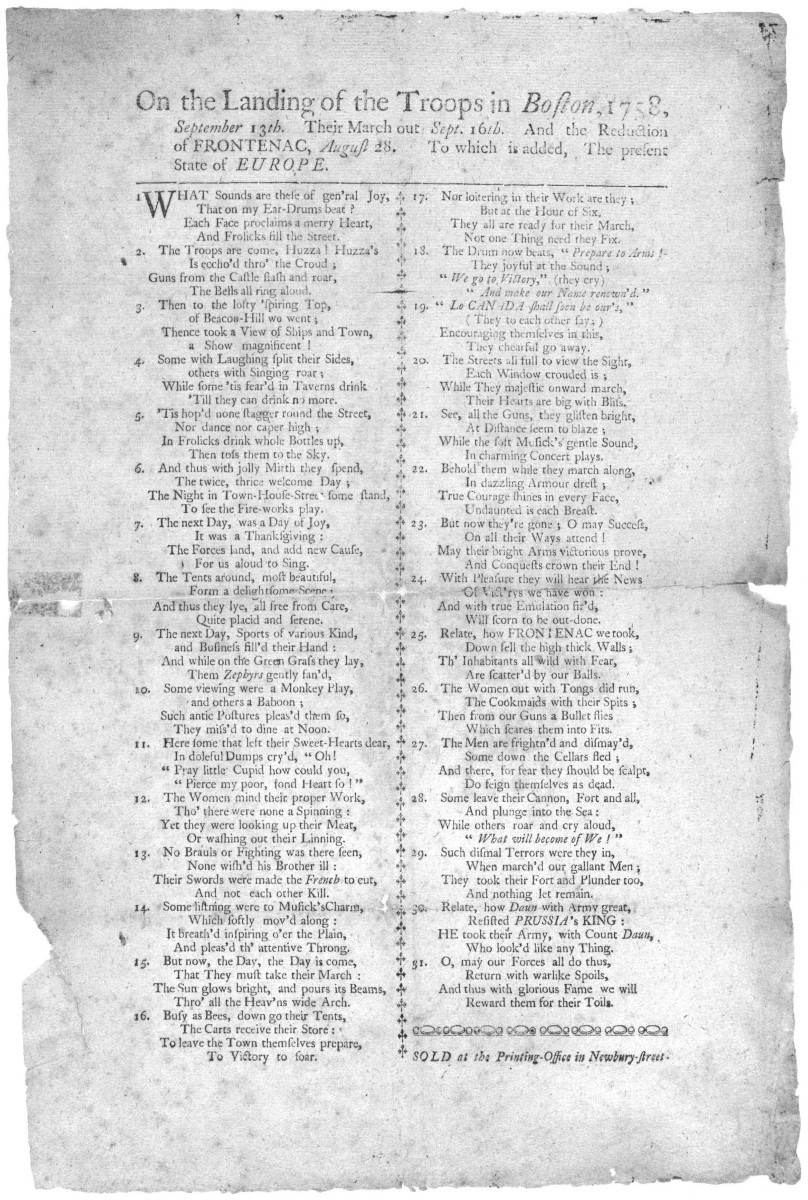 On the Landing of the Troops in Boſton, 1758,
September 13th. Their March out Sept. 16th. And the Reduction
of FRONTENAC, Auguſt 28. To which is added, The preſent
State of EUROPE.
1 WHAT Sounds are theſe of gen'ral Joy,
That on my Ear-Drums beat?
Each Face proclaims a merry Heart,
And Frolicks fill the Street.
2. The Troops are come, Huzza! Huzza's
Is eccho'd thro' the Croud;
Guns from the Caſtle flaſh and roar,
The Bells all ring aloud.
3. Then to the lofty 'ſpiring Top,
of Beacon-Hill we went;
Thence took a View of Ships and Town,
a Show magnificent!
4. Some with Laughing ſplit their Sides,
others with Singing roar;
While ſome 'tis fear'd in Taverns drink
'Till they can drink no more.
5. 'Tis hop'd none ſtagger round the Street,
Nor dance nor caper high;
In Frolicks drink whole Bottles up,
Then toſs them to the Sky.
6. And thus with jolly Mirth they ſpend,
The twice, thrice welcome Day;
The Night in Town-Houſe-Street ſome ſtand,
To ſee the Fire-works play.
7. The next Day, was a Day of Joy,
It was a Thankſgiving:
The Forces land, and add new Cauſe,
For us aloud to Sing.
8. The Tents around, moſt beautiful,
Form a delightſome Scene;
And thus they lye, all free from Care,
Quite placid and ſerene.
9. The next Day, Sports of various Kind,
and Buſineſs fill'd their Hand:
And while on the Green Graſs they lay,
Them Zephyrs gently fan'd,
10. Some viewing were a Monkey Play,
and others a Baboon;
Such antic Poſtures pleas'd them ſo,
They miſs'd to dine at Noon.
11. Here ſome that left their Sweet-Hearts dear,
In doleful Dumps cry'd, "Oh!
"Pray little Cupid how could you,
"Pierce my poor, fond Heart ſo!"
12. The Women mind their proper Work,
Tho' there were none a Spinning:
Yet they were looking up their Meat,
Or waſhing out their Linning.
13. No Brauls or Fighting was there ſeen,
None wiſh'd his Brother ill:
Their Swords were made the French to cut,
And not each other Kill.
14. Some liſtning were to Muſick'sCharm,
Which ſoftly mov'd along:
It breath'd inſpiring o'er the Plain,
And pleas'd th' attentive Throng.
15. But now, the Day, the Day is come,
That They muſt take their March:
The Sun glows bright, and pours its Beams,
Thro' all the Heav'ns wide Arch.
16. Buſy as Bees, down go their Tents,
The Carts receive their Store:
To leave the Town themſelves prepare,
To Victory to ſoar.
17. Nor loitering in their Work are they;
But at the Hour of Six,
They all are ready for their March,
Not one Thing need they Fix.
18. The Drum now beats, "Prepare to Arms!"
They joyful at the Sound;
"We go to Victory," (they cry)
"And make our Name renown'd."
19. "Lo CANADA ſhall ſoon be our's,"
(They to each other ſay;)
Encouraging themſelves in this,
They chearful go away.
20. The Streets all full to view the Sight,
Each Window crouded is;
While They majeſtic onward march,
Their Hearts are big with Bliſs.
21. See, all the Guns, they gliſten bright,
At Diſtance ſeem to blaze;
While the ſoft Muſick's gentle Sound,
In charming Concert plays.
22. Behold them while they march along,
In dazzling Armour dreſt;
True Courage ſhines in every Face,
Undaunted is each Breaſt.
23. But now they're gone; O may Succeſs,
On all their Ways attend!
May their bright Arms victorious prove,
And Conqueſts crown their End!
24. With Pleaſure they will hear the News
Of Vict'rys we have won:
And with true Emulation fir'd,
Will ſcorn to be out-done.
25. Relate, how FRONTENAC we took,
Down fell the high thick Walls;
Th' Inhabitants all wild with Fear,
Are ſcatter'd by our Balls.
26. The Women out with Tongs did run,
The Cookmaids with their Spits;
Then from our Guns a Bullet flies
Which ſcares them into Fits.
27. The Men are frightn'd and diſmay'd,
Some down the Cellars fled;
And there, for fear they ſhould be ſcalpt,
Do feign themſelves as dead.
28. Some leave their Cannon, Fort and all,
And plunge into the Sea:
While others roar and cry aloud,
"What will become of We!"
29. Such diſmal Terrors were they in,
When march'd our gallant Men;
They took their Fort and Plunder too,
And nothing let remain.
30. Relate, how Daun with Army great,
Reſiſted PRUSSIA's KING:
HE took their Army, with Count Daun,
Who look'd like any Thing.
31. O, may our Forces all do thus,
Return with warlike Spoils,
And thus with glorious Fame we will
Reward them for their Toils.
SOLD at the Printing-Office in Newbury-ſtreet.